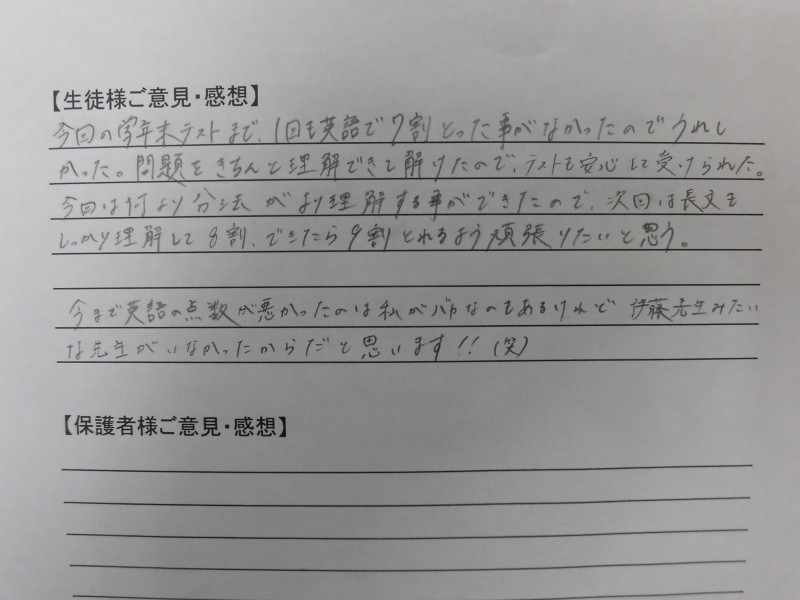 【生徒様ご意見・感想】
今回の学年末テストまで、1回も英語で7割とった事がなかったのでうれし
かった。問題をきちんと理解できて解けたので、テストも安心して受けられた。
今回は何より分法がより理解する事ができたので、次回は長文も
しっかり理解して8割、できたら9割とれるよう頑張りたいと思う。
今まで英語の点数が悪かったのは私がバカなのもあるけれど 伊藤先生みたい
な先生がいなかったからだと思います!!(笑)
【保護者様ご意見・感想】